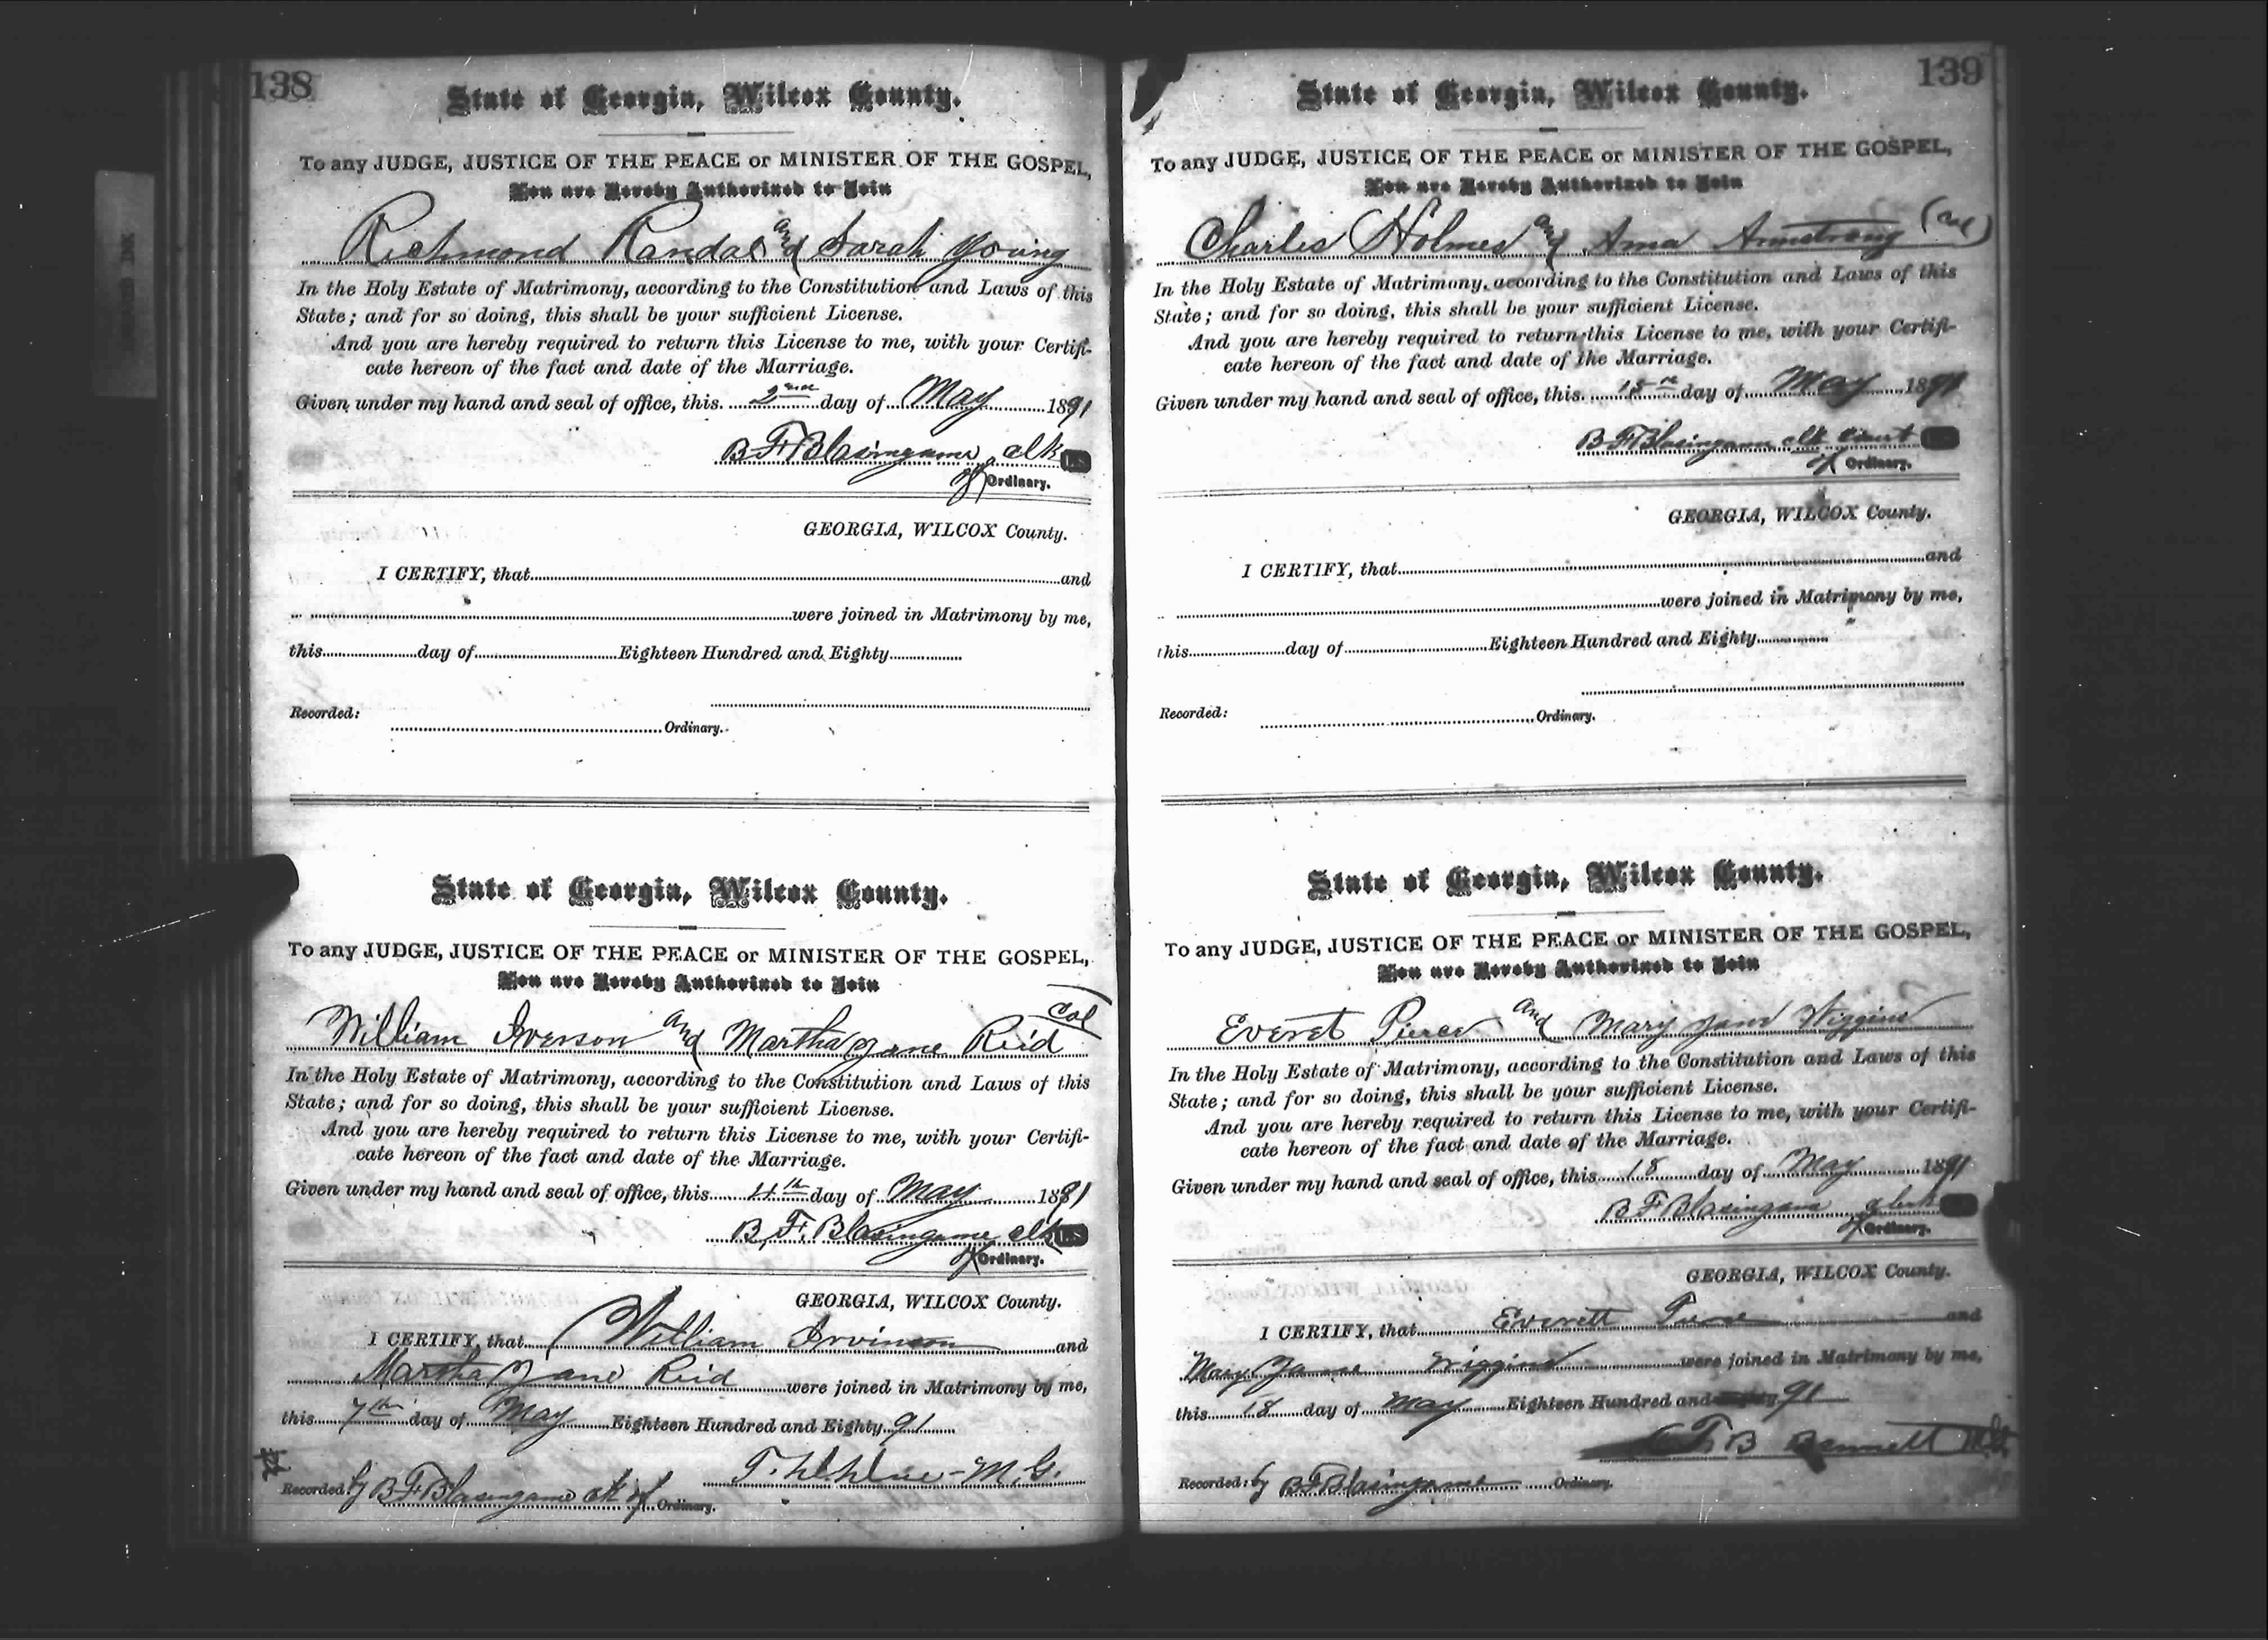 138
State of Georgia, Wilcox County.
To any JUDGE, JUSTICE OF THE PEACE or MINISTER OF THE GOSPEL,
You are Hereby Authorized to Join
Richmond Randal and Sarah Young
In the Holy Estate of Matrimony, according to the Constitution and Laws of this
State; and for so doing, this shall be your sufficient License.
And you are hereby required to return this License to me, with your Certifi-
cate hereon of the fact and date of the Marriage.
Given under my hand and seal of office, this 2nd day of May 1891
B F Blasingame clk LS
of Ordinary.
GEORGIA, WILCOX County.
I CERTIFY, that and
were joined in Matrimony by me,
this day of Eighteen Hundred and Eighty
Recorded:
Ordinary.
State of Georgia, Wilcox County.
To any JUDGE, JUSTICE OF THE PEACE or MINISTER OF THE GOSPEL,
You are Hereby Authorized to Join
William Iverson and Martha Jane Reid Col
In the Holy Estate of Matrimony, according to the Constitution and Laws of this
State; and for so doing, this shall be your sufficient License.
And you are hereby required to return this License to me, with your Certifi-
cate hereon of the fact and date of the Marriage.
Given under my hand and seal of office, this 4th day of May 1891
B. F. Blasingame clk LS
of Ordinary.
GEORGIA, WILCOX County.
I CERTIFY, that William Irvinson and
Martha Jane Reid were joined in Matrimony by me,
this 7th day of May Eighteen Hundred and Eighty 91
M.G.
Recorded by B F Blasingame clk of Ordinary.
139
State of Georgia, Wilcox County.
To any JUDGE, JUSTICE OF THE PEACE or MINISTER OF THE GOSPEL,
You are Hereby Authorized to Join
Charles Holmes and Anna Armstrong (Col)
In the Holy Estate of Matrimony, according to the Constitution and Laws of this
State; and for so doing, this shall be your sufficient License.
And you are hereby required to return this License to me, with your Certifi-
cate hereon of the fact and date of the Marriage.
Given under my hand and seal of office, this day of May 1891
B F Blasingame clk Court
of Ordinary.
GEORGIA, WILCOX County.
I CERTIFY, that and
were joined in Matrimony by me,
this day of Eighteen Hundred and Eighty
Recorded:
Ordinary.
State of Georgia, Wilcox County.
To any JUDGE, JUSTICE OF THE PEACE or MINISTER OF THE GOSPEL,
You are Hereby Authorized to Join
Everet Pierce and Mary Jane Wiggins
In the Holy Estate of Matrimony, according to the Constitution and Laws of this
State; and for so doing, this shall be your sufficient License.
And you are hereby required to return this License to me, with your Certifi-
cate hereon of the fact and date of the Marriage.
Given under my hand and seal of office, this 18 day of May 1891
B F Blasingame Clerk
of Ordinary.
GEORGIA, WILCOX County.
I CERTIFY, that Everett and
Mary Jane Wiggins were joined in Matrimony by me,
this 18 day of May Eighteen Hundred and 91
B Bennett
Recorded: by B F Blasingame Ordinary.